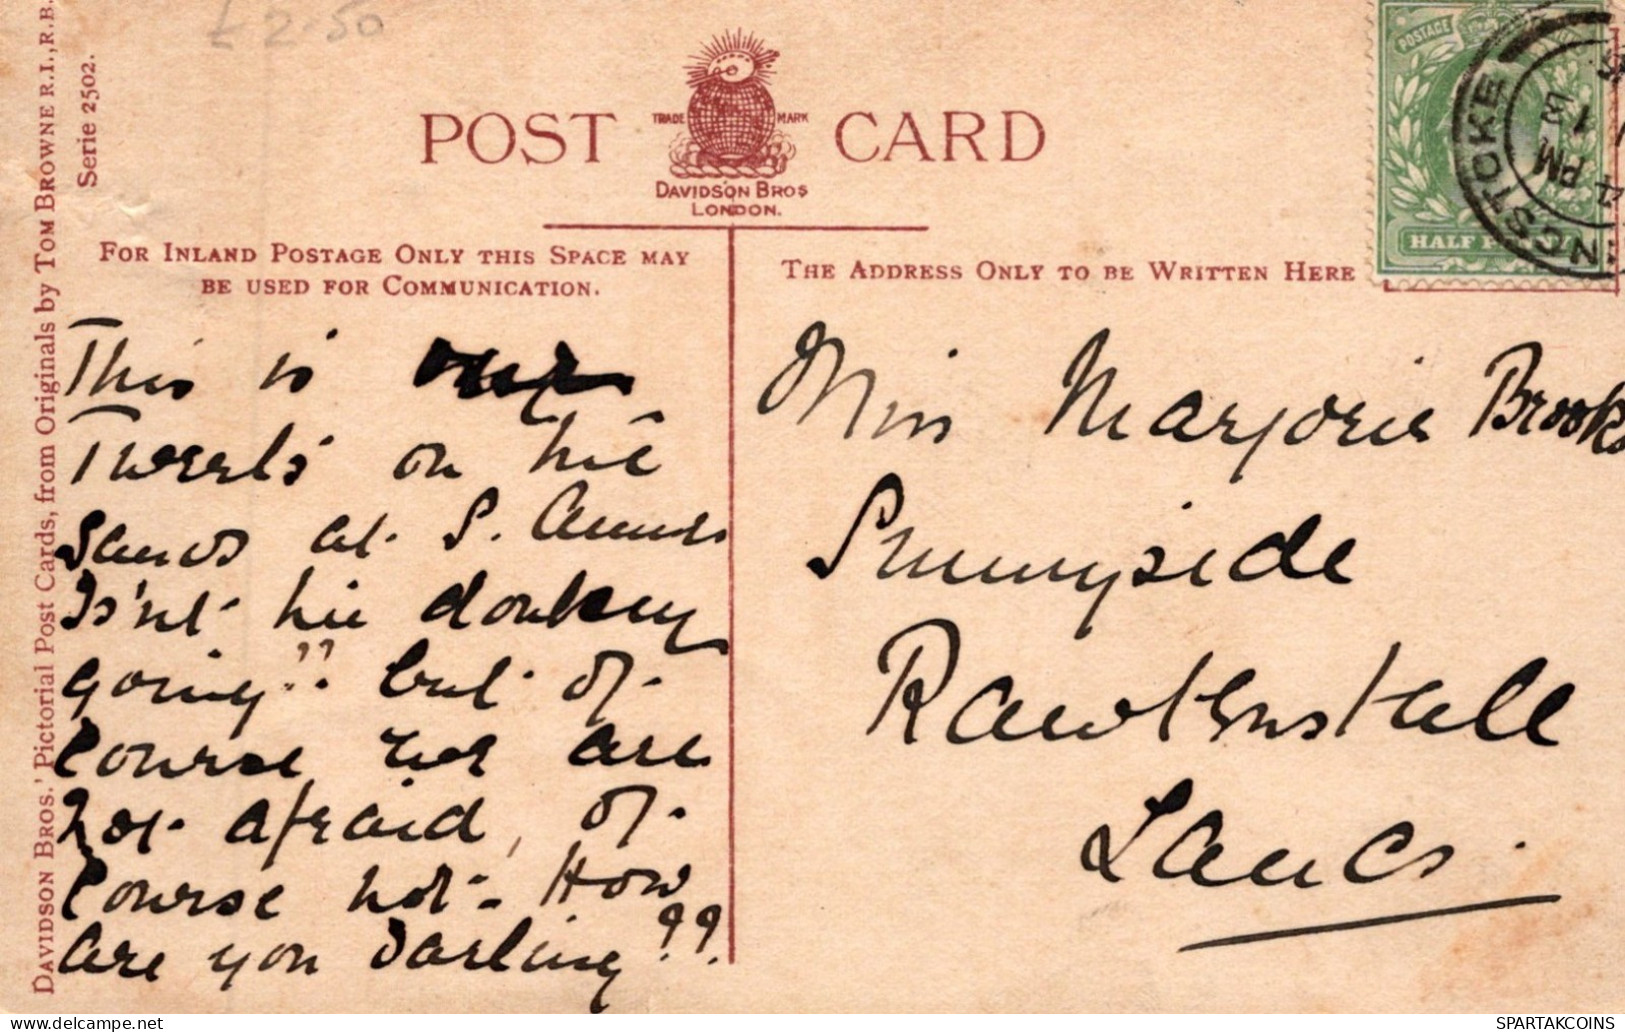 £2.50
POST CARD
TRADE MARK
DAVIDSON BROS
LONDON.
FOR INLAND POSTAGE ONLY THIS SPACE MAY
BE USED FOR COMMUNICATION.
THE ADDRESS ONLY TO BE WRITTEN HERE
POSTAGE
HALF PENNY
INGSTOKE
4 PM
DAVIDSON BROS.' Pictorial Post Cards, from Originals by TOM BROWNE R.I., R.B.
Serie 2502.
This is
on the
sands at S. Annes
Is'nt the donkey
going?? but of
course we are
not afraid, of
course not - How
are you darling??
Miss Marjorie Brooks
Sunnyside
Rawtenstall
Lancs.
Image hosted on Delcampe.net
SPARTAKCOINS